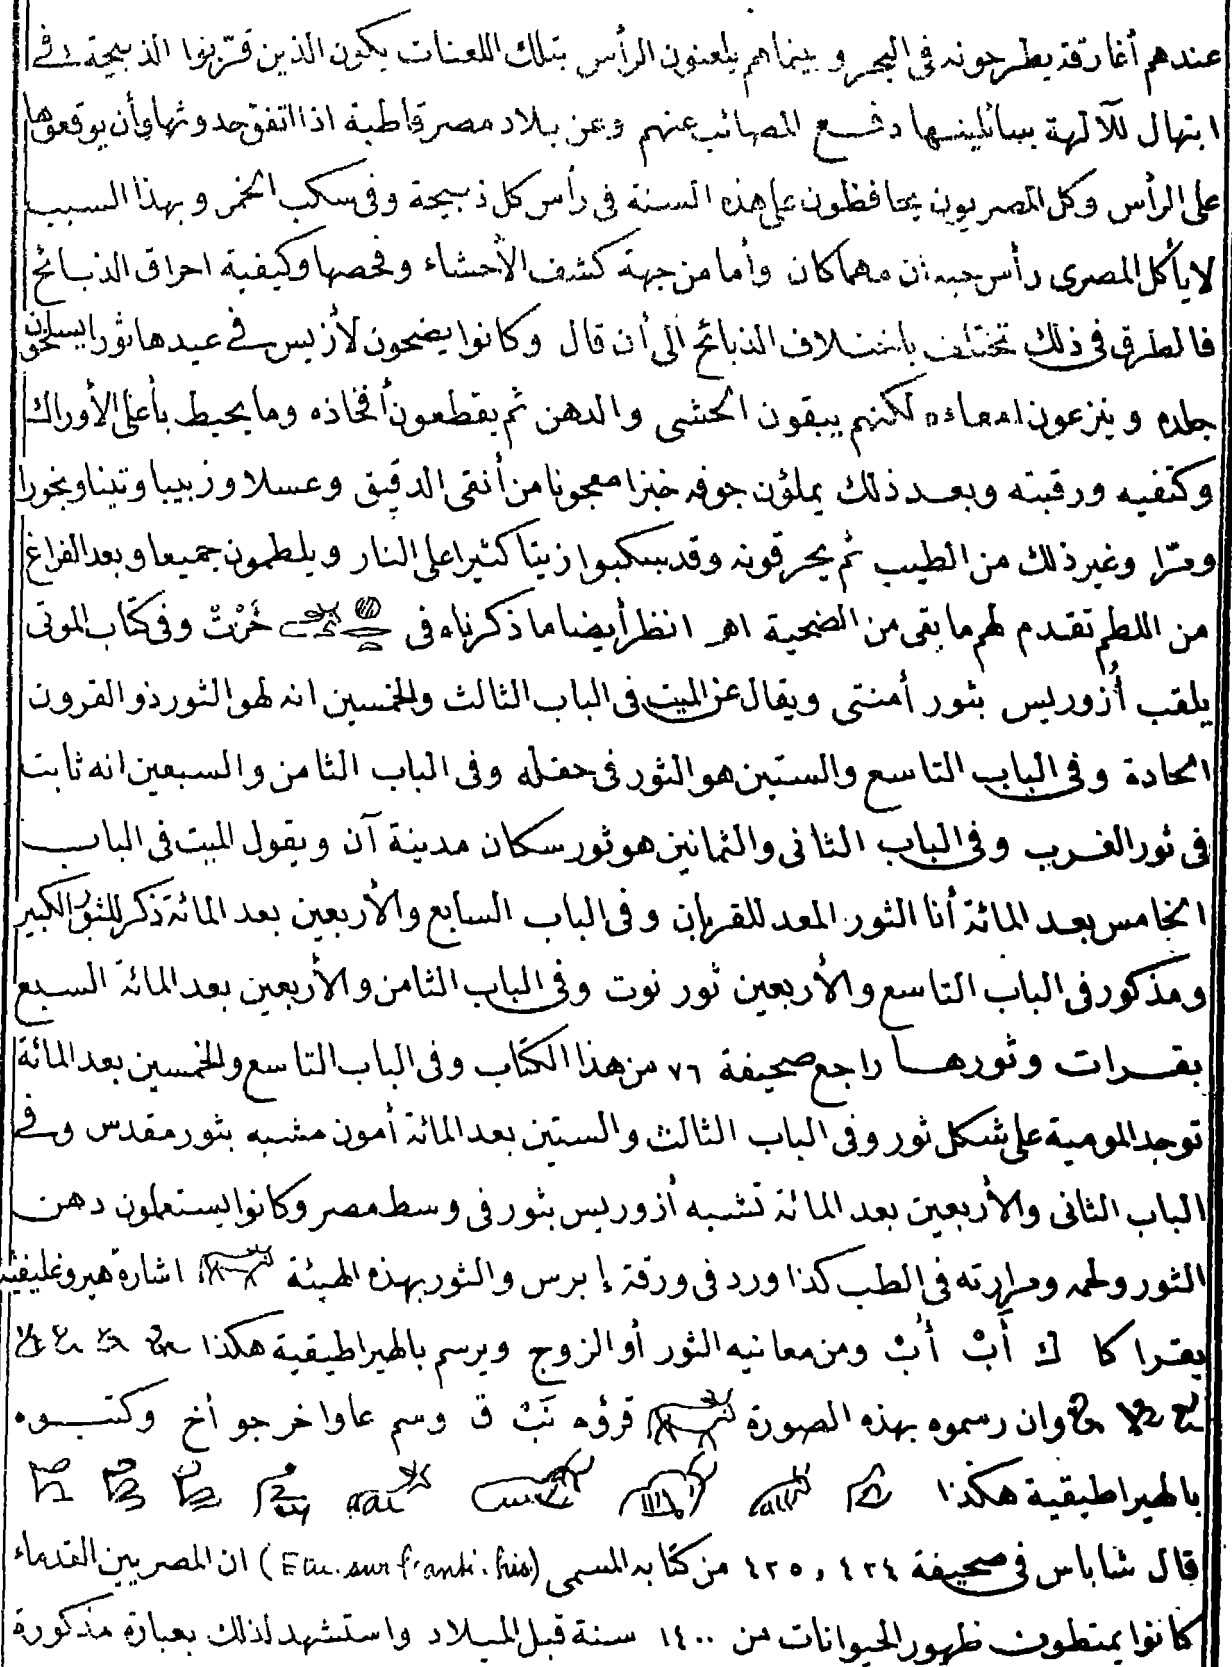 عندهم أغارقة يطرحونه فى البحر وبينما هم يلعنون الرأس بتلك اللعنات يكون الذين قرّبوا الذبيحة فى
ابتهال للآلهة يسائلينها دفع المصائب عنهم وعن بلاد مصر قاطبة اذا اتفق حدوثها وأن يوقعوها
على الرأس وكل المصريون يحافظون على هذه السنة فى رأس كل ذبيحة وفى سكب الخمر وبهذا السبب
لا يأكل المصرى رأس حيوان مهما كان وأما من جهة كشف الأحشاء وفحصها وكيفية احراق الذبائح
فالطرق فى ذلك تختلف باختلاف الذبائح الى أن قال وكانوا يضحون لأزيس فى عيدها ثورا يسلخون
جلده وينزعون امعاءه لكنهم يبقون الحشى والدهن ثم يقطعون أفخاذه وما يحيط بأعلى الأوراك
وكتفيه ورقبته وبعد ذلك يملؤن جوفه خبزا معجونا من أنقى الدقيق وعسلا وزبيبا وتينا وبخورا
ومرّا وغير ذلك من الطيب ثم يحرقونه وقد سكبوا زيتا كثيرا على النار ويلطمون جميعا وبعد الفراغ
من اللطم تقدم لهم ما بقى من الضحية اهـ انظر أيضا ما ذكرناه فى خَرْتْ وفى كتاب الموتى
يلقب أُزوريس بثور أمنتى ويقال عن الميت فى الباب الثالث والخمسين انه لهو الثور ذو القرون
الحادة وفى الباب التاسع والستين هو الثور فى حقله وفى الباب الثامن والسبعين انه ثابت
فى ثور الغرب وفى الباب الثانى والثمانين هو ثور سكان مدينة آن ويقول الميت فى الباب
الخامس بعد المائة أنا الثور المعد للقربان وفى الباب السابع والأربعين بعد المائة ذكر للثور الكبير
ومذكور فى الباب التاسع والأربعين ثور نوت وفى الباب الثامن والأربعين بعد المائة السبع
بقرات وثورها راجع صحيفة ٧٦ من هذا الكتاب وفى الباب التاسع والخمسين بعد المائة
توجد المومية على شكل ثور وفى الباب الثالث والستين بعد المائة أمون مشبه بثور مقدس وفى
الباب الثانى والأربعين بعد المائة تشبه أزوريس بثور فى وسط مصر وكانوا يستعملون دهن
الثور ولحمه ومرارته فى الطب كذا ورد فى ورقة إبرس والثور بهذه الهيئة اشارة هيروغليفية
يقرا كا ك أَبْ أُبْ ومن معانيه الثور أو الزوج ويرسم بالهيراطيقية هكذا
وان رسموه بهذه الصورة قرؤه نَبْ ق وسم عاوا خر جو أخ وكتبوه
بالهيراطيقية هكذا
قال شاباس فى صحيفة ٤٢٤ و ٤٢٥ من كتابه المسمى (Etu. sur l'anti. his) ان المصريين القدماء
كانوا يمتطون ظهور الحيوانات من ١٤٠٠ سنة قبل الميلاد واستشهد لذلك بعبارة مذكورة